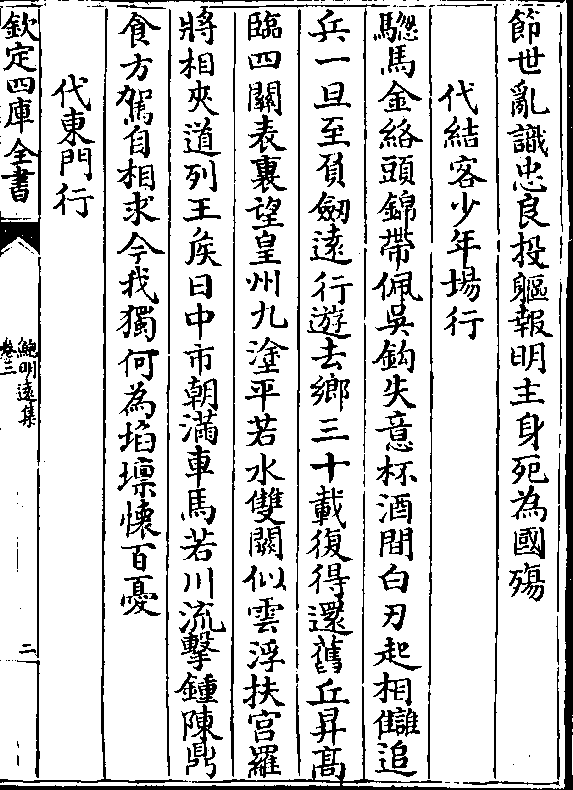 節世亂識忠良投軀報明主身死為國殤
代結客少年場行
驄馬金絡頭錦帶佩吳鈎失意杯酒間白刃起相讎追
兵一旦至負劒逺行遊去鄉三十載復得還舊丘昇髙
臨四關表裏望皇州九塗平若水雙闕似雲浮扶宫羅
將相夾道列王侯日中市朝滿車馬若川流擊鍾陳鼎
食方駕自相求今我獨何為埳壈懷百憂
代東門行
欽定四庫全書
鮑明逺集
卷三
二